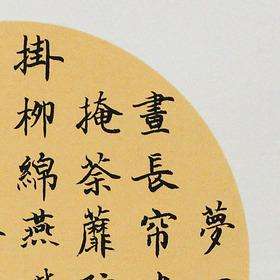 夢
晝長帘
掩荼蘼
掛柳綿燕